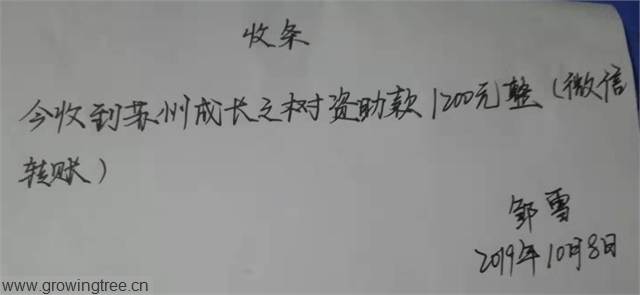 收条
今收到苏州成长之树资助款1200元整(微信
转账)
邹雪
2019年10月8日
www.growingtree.cn